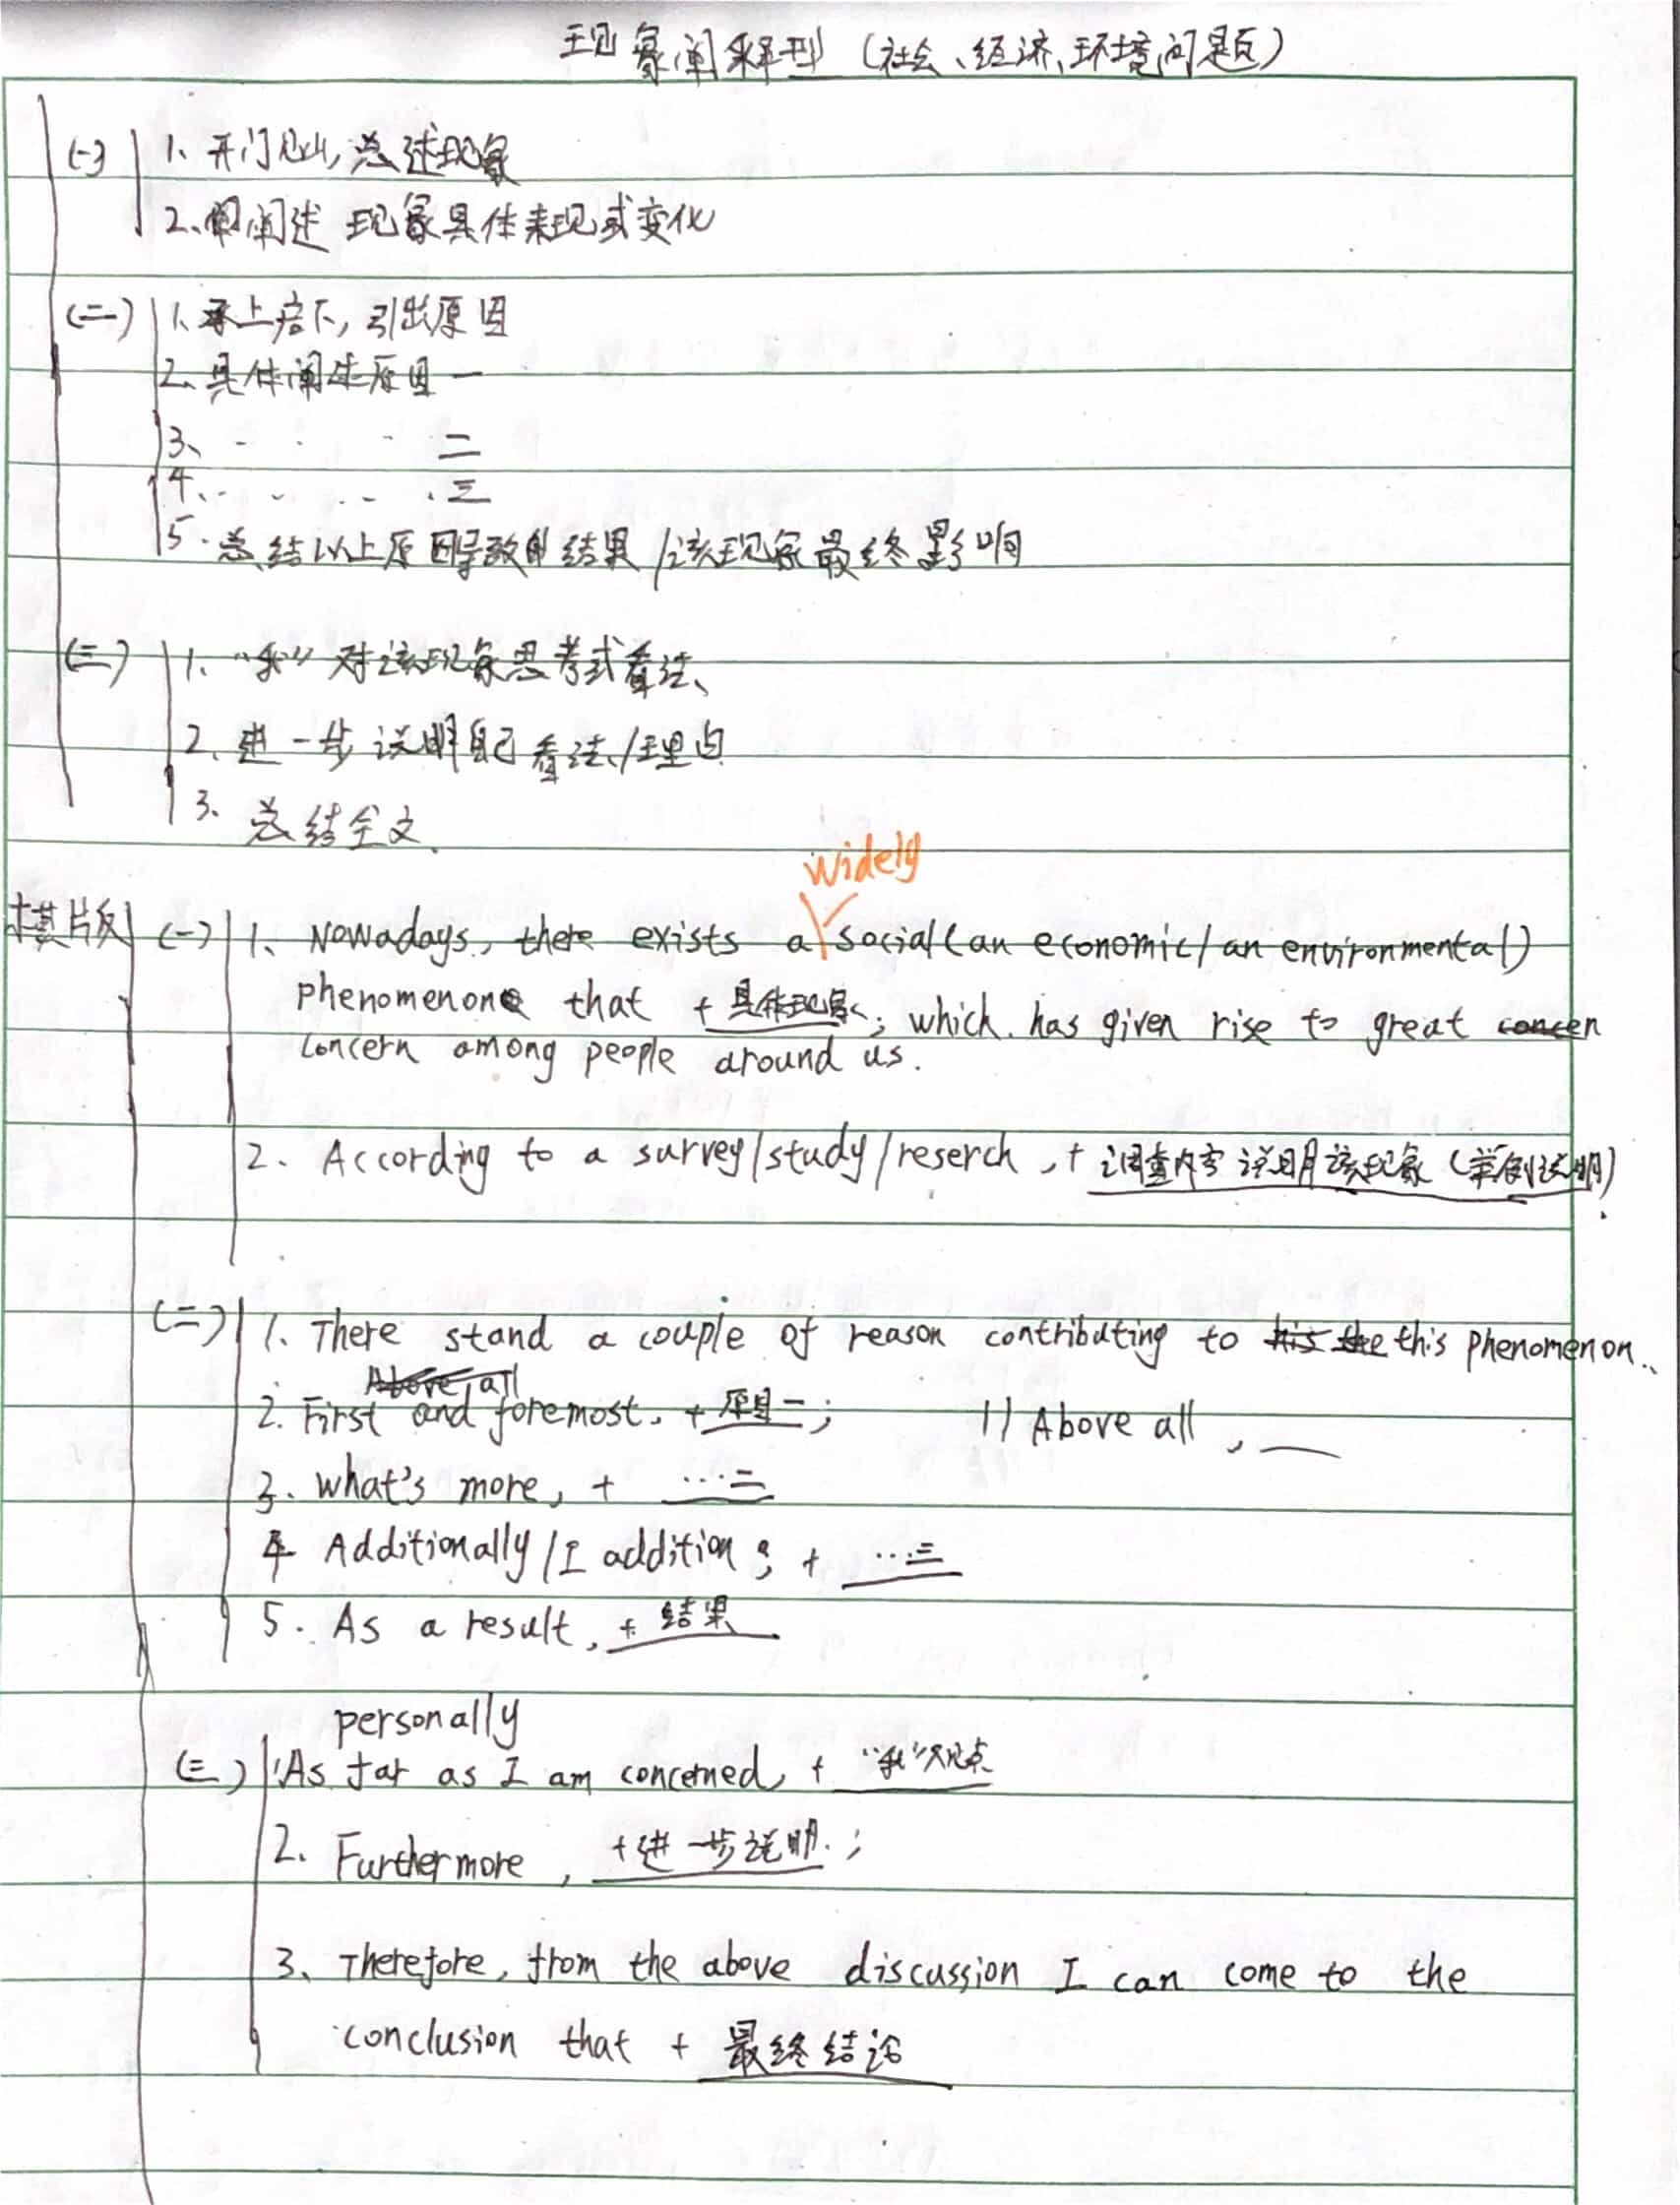 现象阐释型（社会、经济、环境问题）
(一) 1、开门见山，总述现象
2、阐述 现象具体表现或变化
(二) 1、承上启下，引出原因
2、具体阐述原因一
3、- - - 二
4、- - - - 三
5. 总结以上原因导致的结果/该现象最终影响
(三) 1、“我”对该现象思考或看法、
2、进一步说明自己看法/理由
3、总结全文.
widely
模板 (一) 1、Nowadays, there exists a social (an economic/an environmental)
phenomenon that + 具体现象, which has given rise to great
concern among people around us.
2. According to a survey/study/reserch, + 调查内容说明该现象(举例说明).
(二) 1. There stand a couple of reason contributing to this phenomenon.
2. First and foremost, + 原因一; // Above all, __
3. what's more, + ...二
4 Additionally/I addition, + ...三
5. As a result, + 结果
personally
(三) 1 As far as I am concerned, + “我”观点
2. Furthermore, + 进一步说明;
3、Therefore, from the above discussion I can come to the
conclusion that + 最终结论